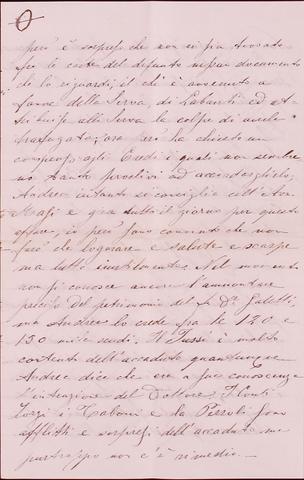 però è sorpreso che non si sia trovato
fra le carte del defunto nessun documento
che lo riguardi, il che è avvenuto a
favore della Serva, di Labanti ed at-
tribuisce alla Serva la colpa di averle
trafugate; ora però ha chiesto un
compenso agli Eredi i quali non sembra-
no tanto proclivi ad accordarglielo,
Andrea intanto si consiglia coll'Avv.
e gira tutto il giorno per questo
affare, io però sono convinto che non
farà che logorare e salute e scarpe
ma tutto inutilmente. Nel momento
non si conosce ancora l'ammontare
preciso del patrimonio del fu Dr. Galetti,
ma Andrea lo crede fra le 120 e
130 mila scudi. Il è molto
contento dell'accaduto quantunque
Andrea dice che era a sua conoscenza
l'intenzione del Dottore. I Conti
Zorzi i Taboni e la sono
afflitti e sorpresi dell'accaduto ma
purtroppo non c'è rimedio. —